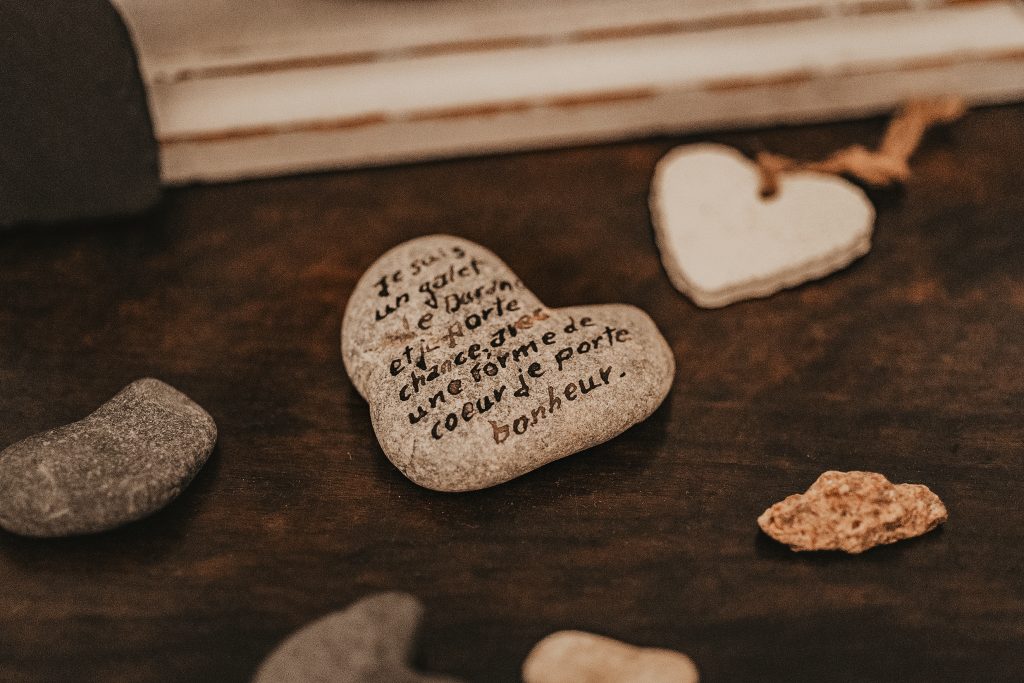 Je suis
un galet
de
et je porte
chance, avec
une forme de
coeur je porte
bonheur.